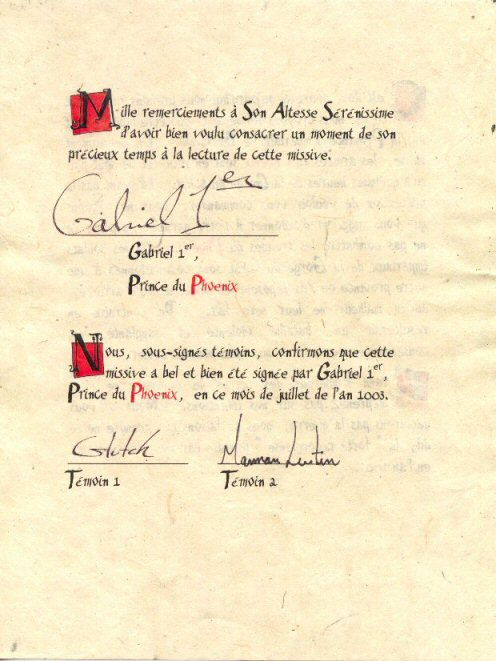 Mille remerciements à Son Altesse Sérénissime
d'avoir bien voulu consacrer un moment de son
précieux temps à la lecture de cette missive.
Gabriel 1er
Gabriel 1er,
Prince du Phoenix
Nous, sous-signés témoins, confirmons que cette
missive a bel et bien été signée par Gabriel 1er,
Prince du Phoenix, en ce mois de juillet de l'an 1003.
Témoin 1 Témoin 2